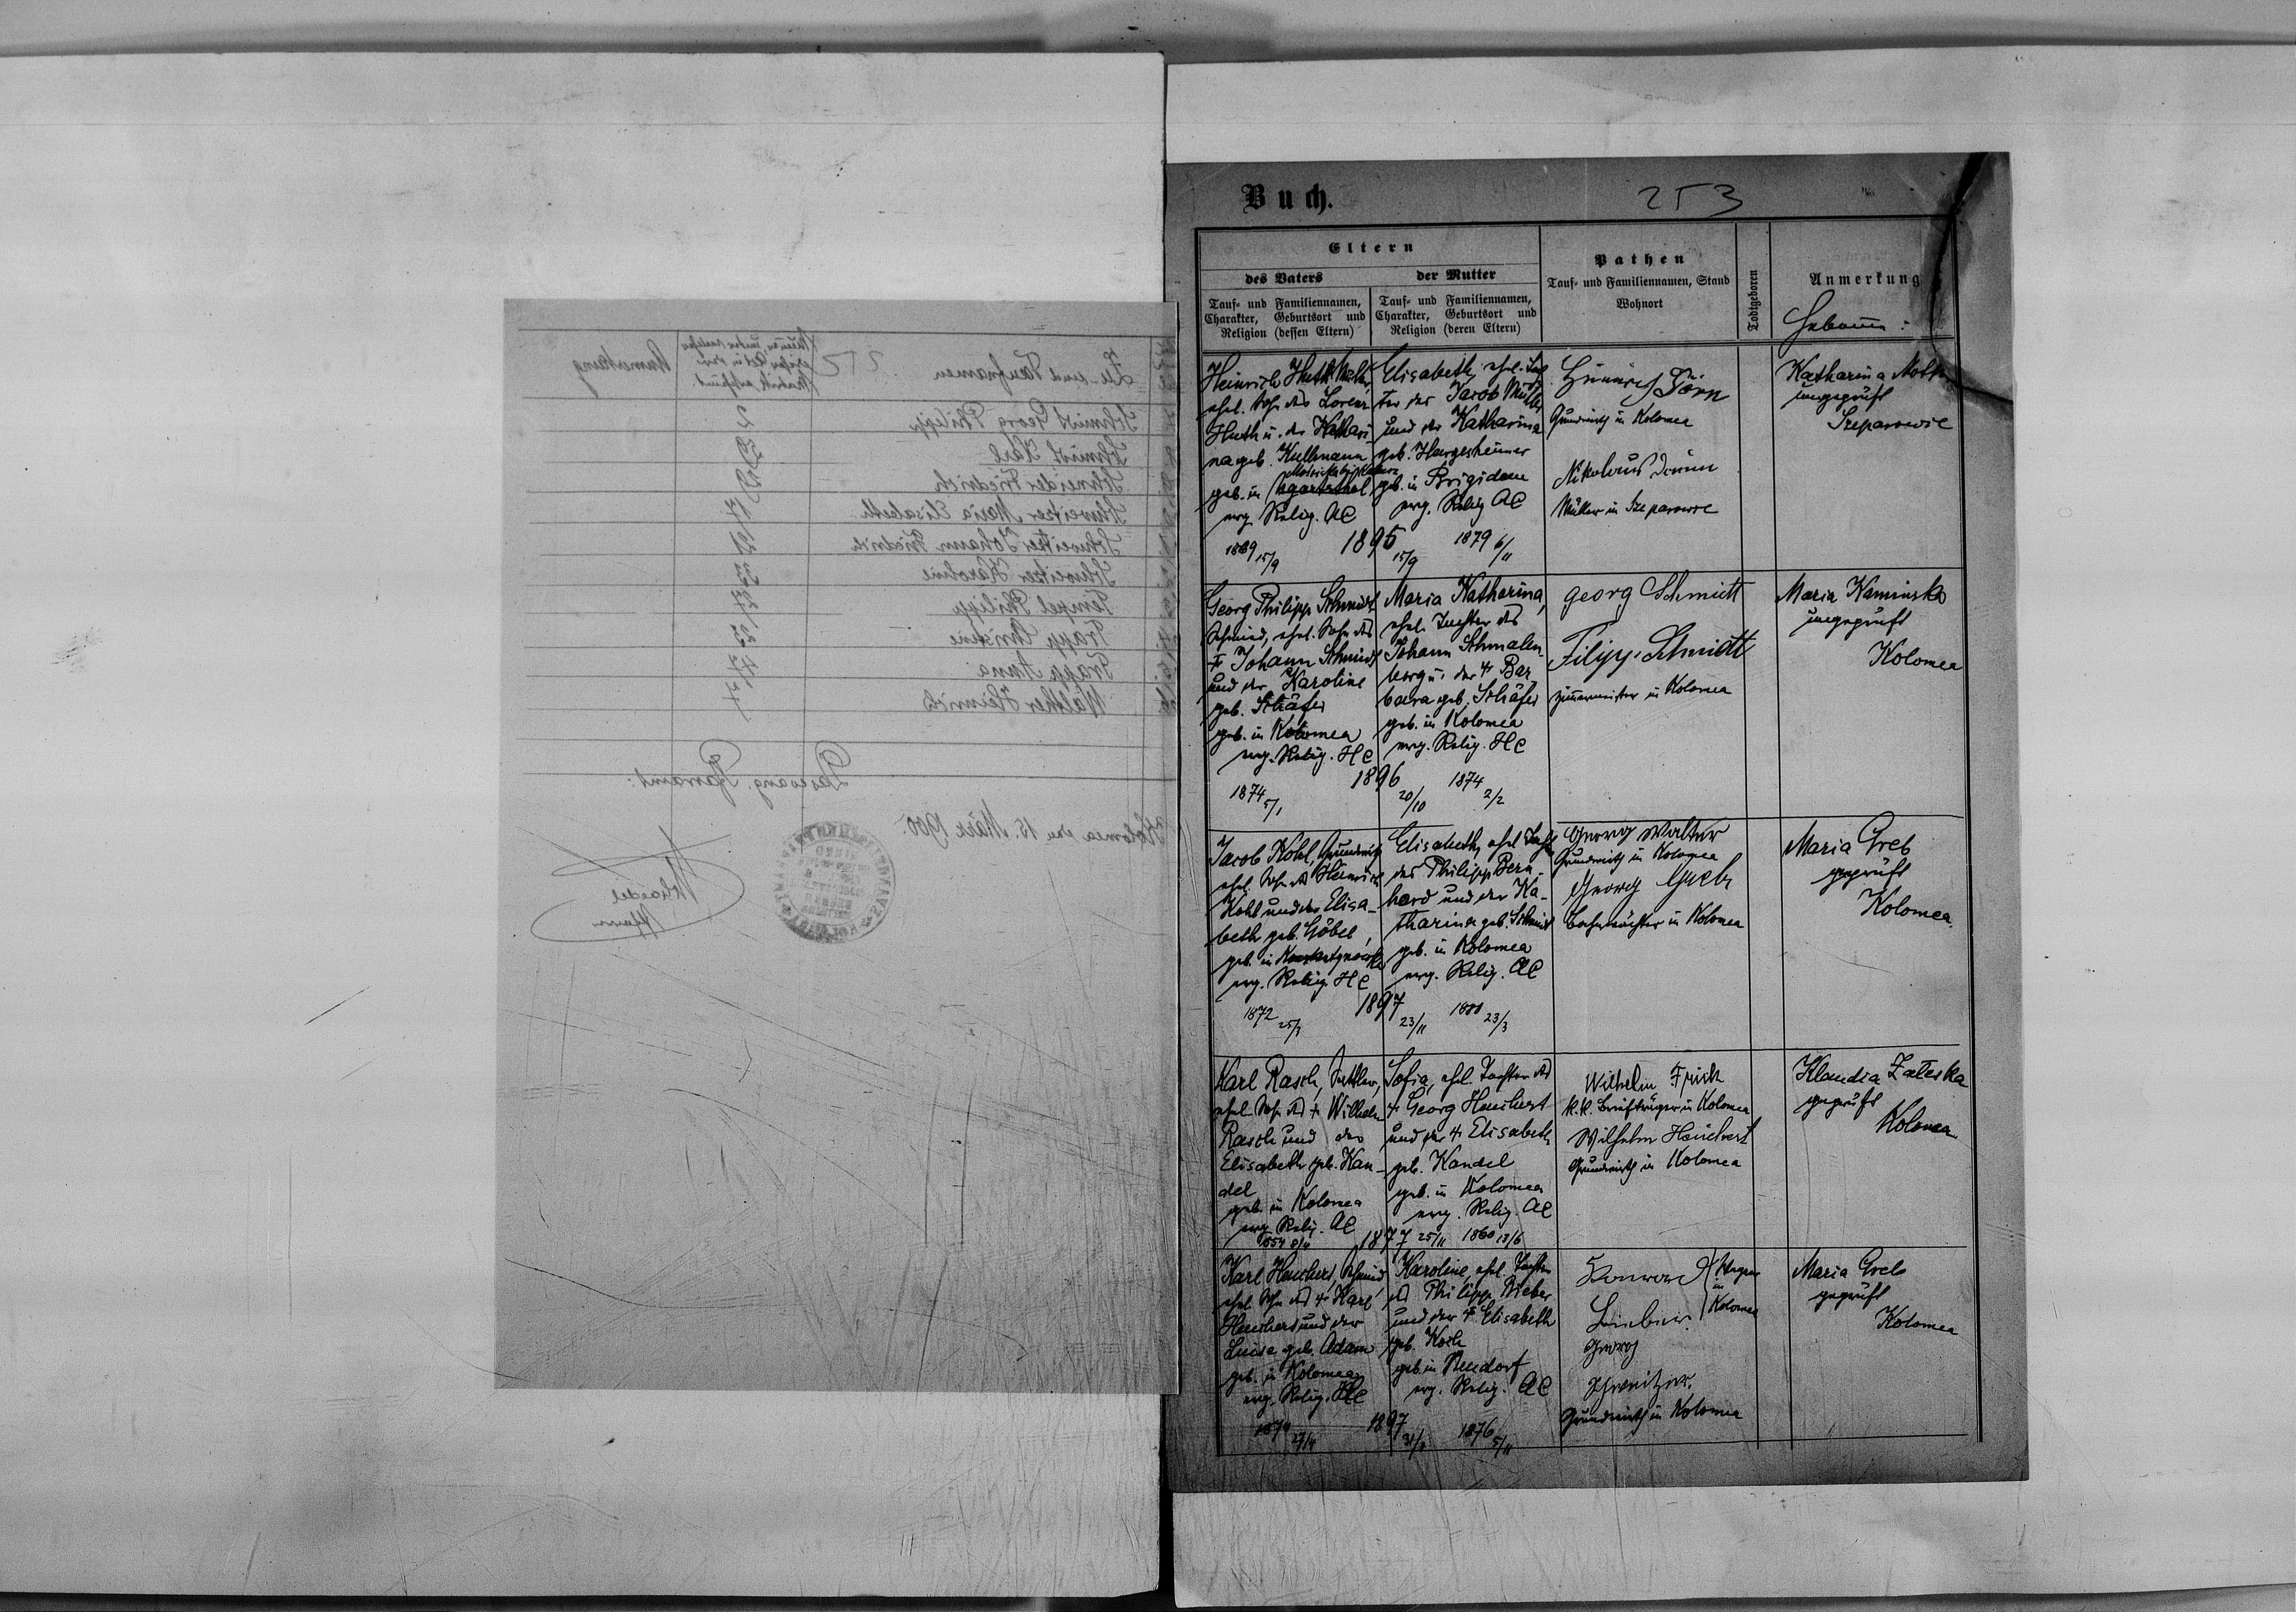 Zu- und Taufnamen
Anmerkung
Schmidt Georg Philipp 2
Schmidt Karl
Schneider Friedrich
Schweitzer Maria Elisabeth 17
Schweitzer Johann Friedrich 21
Schweitzer Karoline 33
Tempel Philipp 27
Trapp Christine 23
Trapp Anna 47
Walther Heinrich 7
Das evang. Pfarramt:
Kolomea den 15. März 1900.
Buch.
253
Eltern
des Vaters
der Mutter
Tauf- und Familiennamen,
Charakter, Geburtsort und
Religion (dessen Eltern)
Tauf- und Familiennamen,
Charakter, Geburtsort und
Religion (deren Eltern)
Pathen
Tauf- und Familiennamen, Stand
Wohnort
Todtgeboren
Anmerkung
Hebamme:
Heinrich Huth, Müller,
ehel. Sohn des Lorenz
Huth u. der Kathari-
na geb. Kullmann
geb. in
evg. Relig. AC
15/9
Elisabeth, ehel. Toch-
ter des Jacob Müller
und der Katharina
geb. Hargesheimer
geb. in Brigidau
evg. Relig. AC
1895 15/9
1879 6/11
Heinrich Törn
Grundwirth in Kolomea
Nikolaus
Müller in Szeparowce
Katharina
ungeprüft
Szeparowce
Georg Philipp Schmidt
Schmied, ehel. Sohn des
† Johann Schmidt
und der Karoline
geb. Schäfer
geb. in Kolomea
evg. Relig. HC
1874 5/1
Maria Katharina,
ehel. Tochter des
Johann Schmalen-
berg u. der † Bar-
bara geb. Schäfer
geb. in Kolomea
evg. Relig. HC
1896 20/10
1874 2/2
Georg Schmidt
Filipp Schmidt
Zimmermeister in Kolomea
Maria Kaminska
ungeprüft
Kolomea
Jacob Kohl, Grundwirth
ehel. Sohn des Heinrich
Kohl und der Elisa-
beth geb. Göbel,
geb. in
evg. Relig. HC
1872 25/3
Elisabeth, ehel. Tochter
des Philipp Bern-
hard und der Ka-
tharina geb. Schmidt
geb. in Kolomea
evg. Relig. AC
1897 23/11
1880 23/3
Georg Walter
Grundwirth in Kolomea
Georg Greb
Bahnwächter in Kolomea
Maria Greb
geprüft
Kolomea
Karl Rasch, Sattler,
ehel. Sohn des † Wilhelm
Rasch und der
Elisabeth geb. Kan-
del
geb. in Kolomea
evg. Relig. AC
Sofia, ehel. Tochter des
† Georg Heuchert
und der † Elisabeth
geb. Kandel
geb. in Kolomea
evg. Relig. AC
1877 25/11
1860 13/6
Wilhelm Frick
k.k. Briefträger in Kolomea
Wilhelm Heuchert
Grundwirth in Kolomea
Klaudia Załeska
geprüft
Kolomea
Karl Heuchert, Schmied
ehel. Sohn des † Karl
Heuchert und der
Luise geb. Adam
geb. in Kolomea
evg. Relig. HC
27/4
Karoline, ehel. Tochter
des Philipp Bieber
und der † Elisabeth
geb. Koch
geb. in Neudorf
evg. Relig. AC
1897
1876 5/11
Konrad
in
Kolomea
Georg
Schweitzer.
Grundwirth in Kolomea
Maria Greb
geprüft
Kolomea